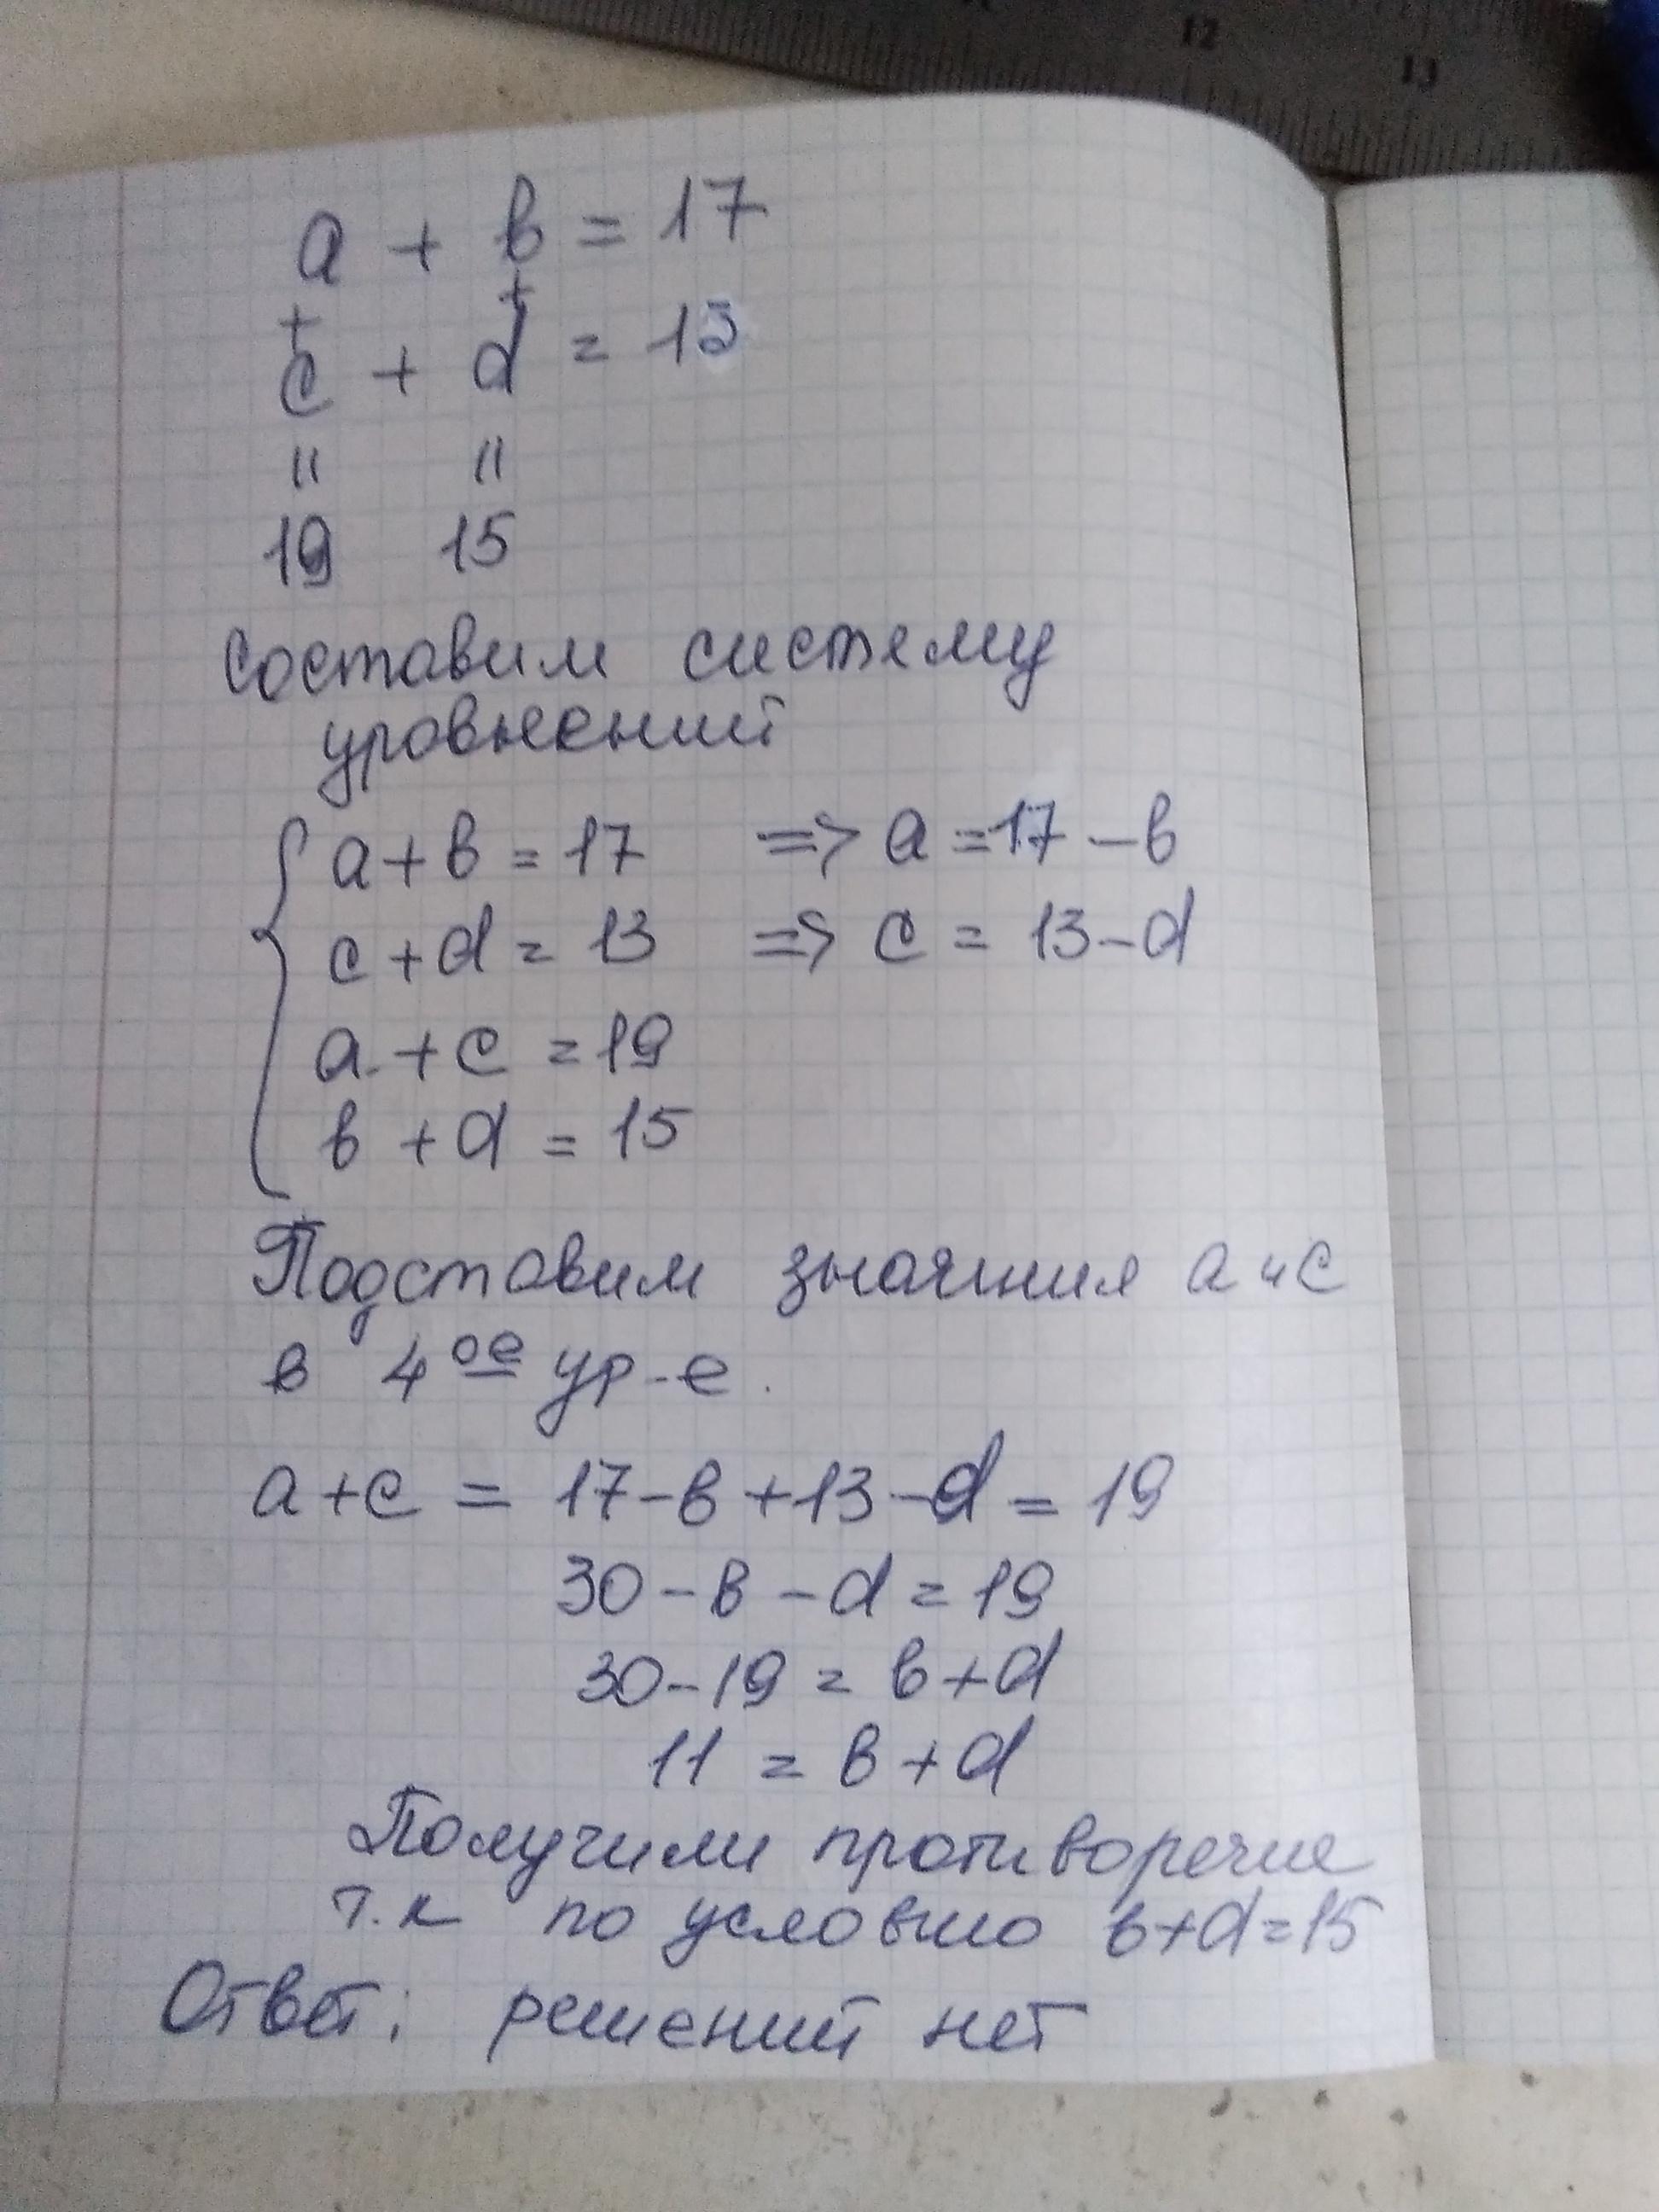 12
13
a + в = 17
+ +
c + d = 13
" "
19 15
составим систему
уровнений
a + в = 17 => a = 17 - в
c + d = 13 => c = 13 - d
a + c = 19
в + d = 15
Подставим значения a и c
в 4 ое ур-е.
a + c = 17 - в + 13 - d = 19
30 - в - d = 19
30 - 19 = в + d
11 = в + d
Получили противоречие
т.к по условию в + d = 15
Ответ: решений нет